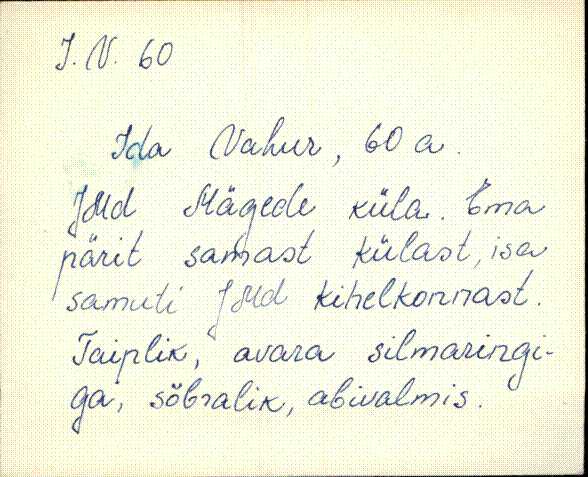 I. V. 60
Ida Vahur, 60 a.
JMd Mägede küla. Ema
pärit samast külast, isa
samuti JMd kihelkonnast.
Taiplik, avara silmaringi-
ga, sõbralik, abivalmis.